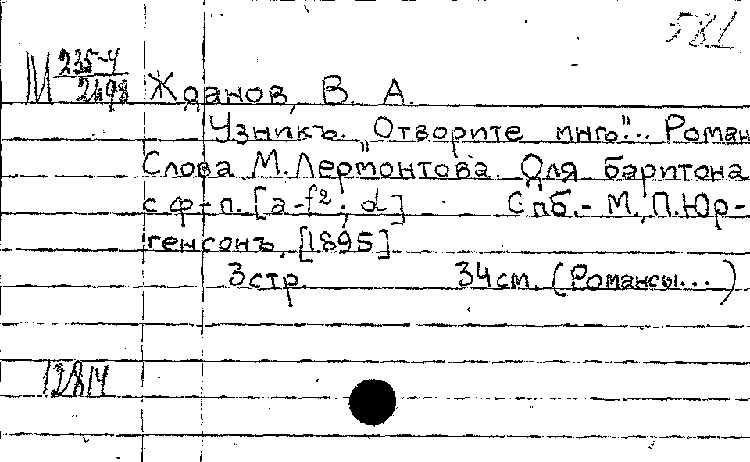 581
М 235-4/2498 Жданов, В. А.
Узникъ. "Отворите мнѣ"... Роман
Слова М. Лермонтова. Для баритона
с ф-п. [a-f²; d] Спб.- М., П. Юр-
генсонъ, [1895]
3 стр. 34 см. (Романсы...)
12814